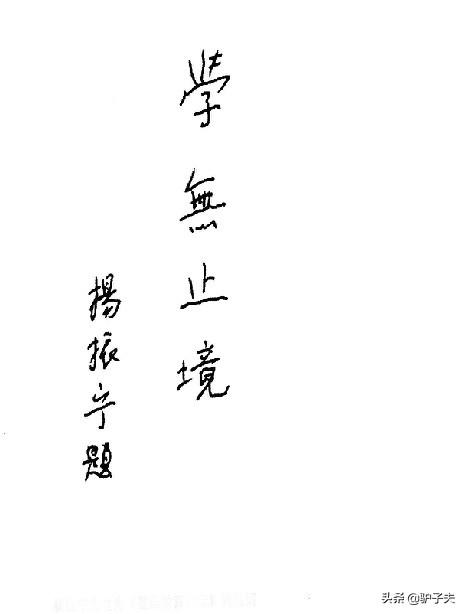 學無止境
楊振宁題
头条 @驴子夫